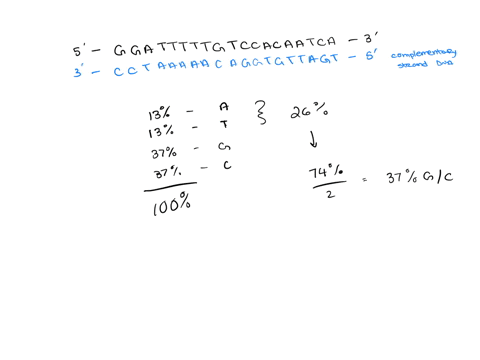 5' - GGATTTTTGTCCACAATCA - 3'
3' - CCTAAAAACAGGTGTTAGT - 5' complementary
second DNA
13% - A
13% - T } 26%
37% - G ↓
37% - C 74%/2 = 37% G/C
100%